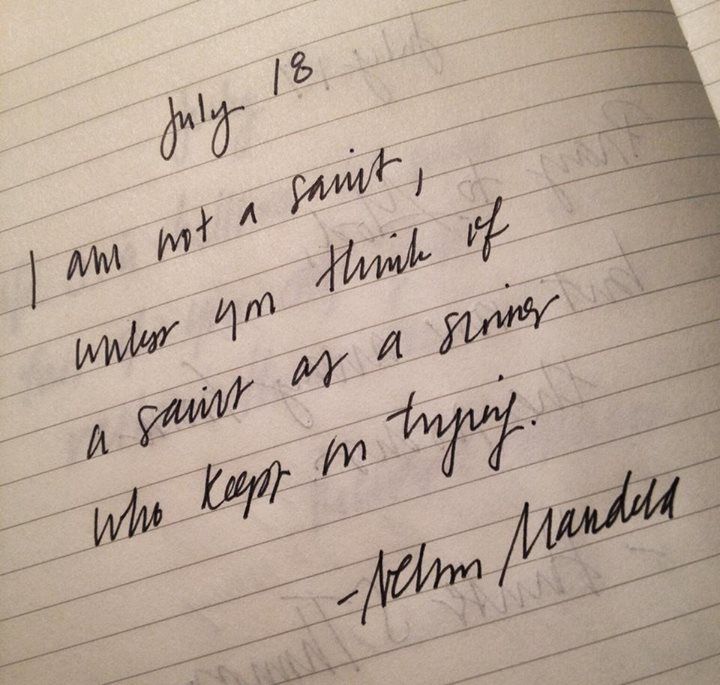 July 18
I am not a saint,
unless you think of
a saint as a sinner
who keeps on trying.
- Nelson Mandela